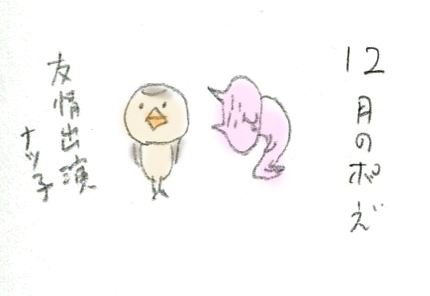 12月のポエ゛
友情出演
ナツ子